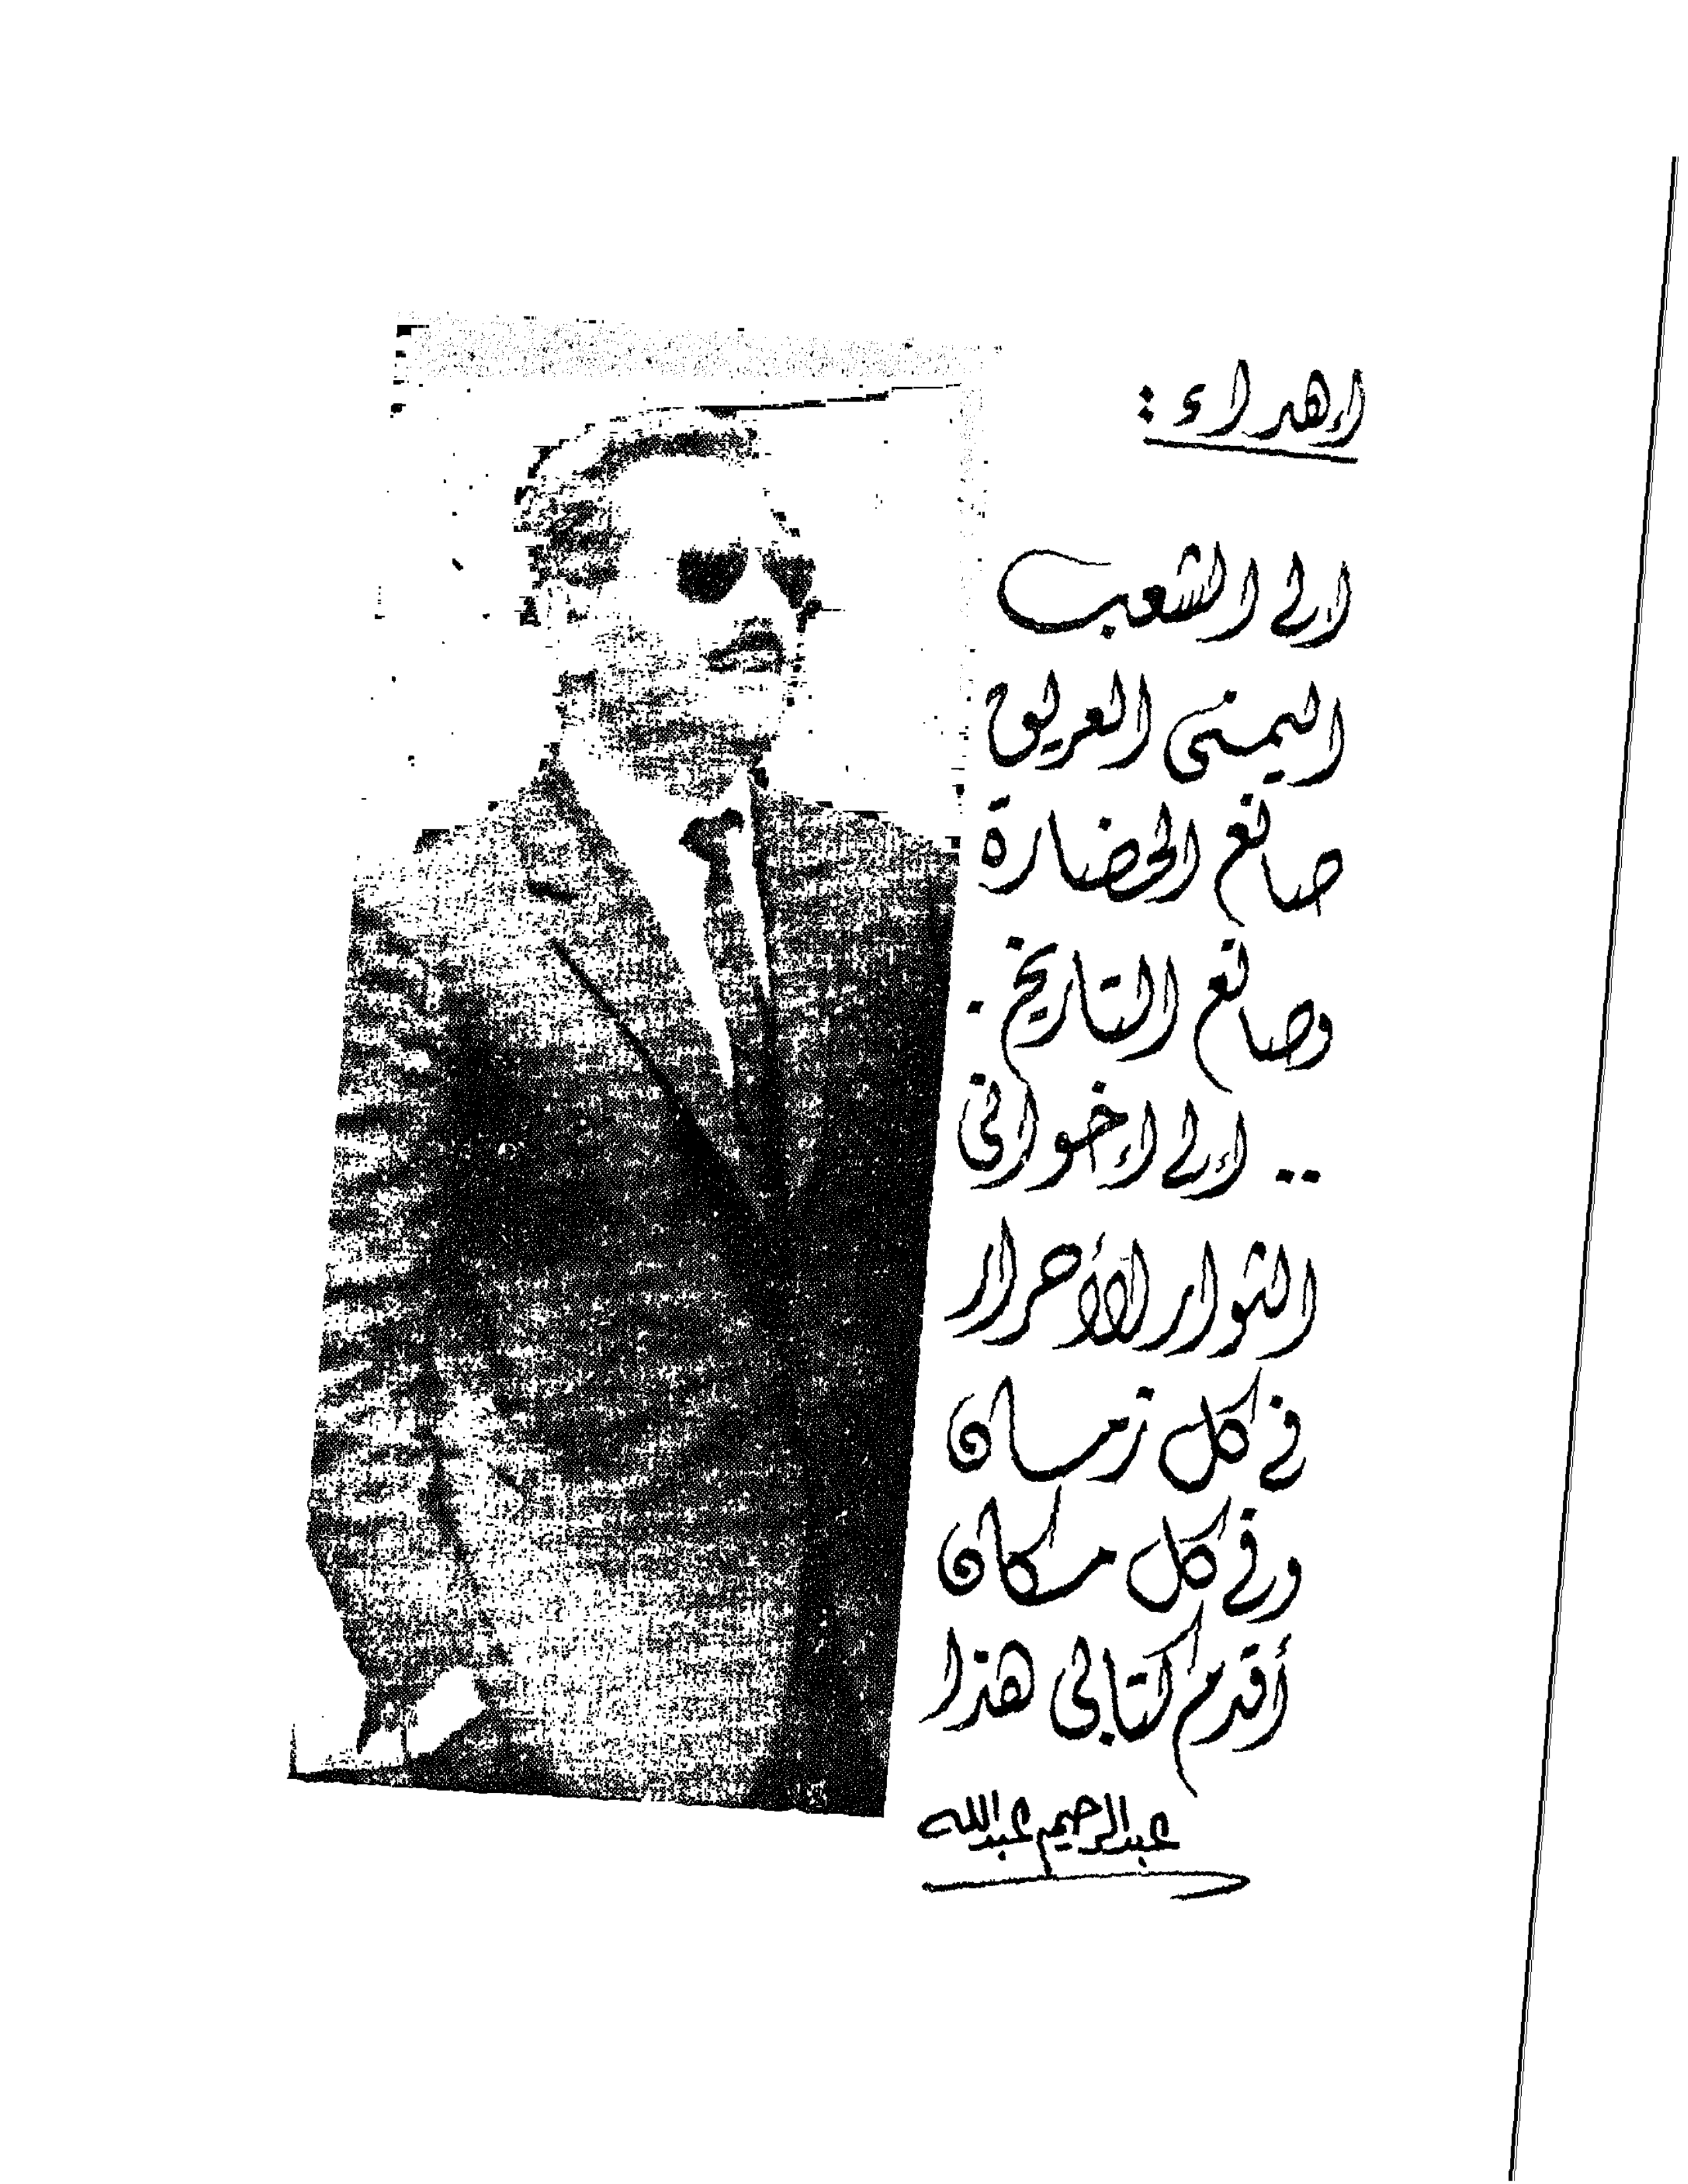 إهداء :
إلى الشعب
اليمنى العريق
صانع الحضارة
وصانع التاريخ .
.. إلى إخوانى
الثوار الأحرار
فى كل زمان
وفى كل مكان
أقدم كتابى هذا
عبدالرحيم عبدالله